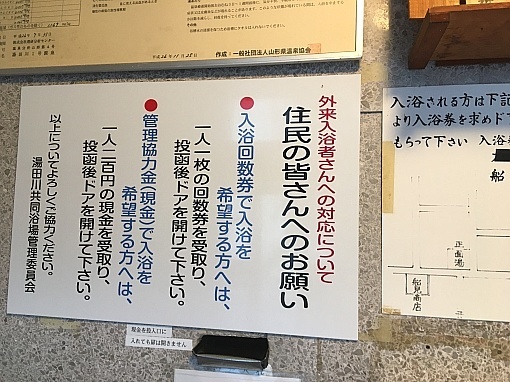 外来入浴者さんへの対応について
住民の皆さんへのお願い
●入浴回数券で入浴を
希望する方へは、
一人一枚の回数券を受取り、
投函後ドアを開けて下さい。
●管理協力金(現金)で入浴を
希望する方へは、
一人二百円の現金を受取り、
投函後ドアを開けて下さい。
以上についてよろしくご協力ください。
湯田川共同浴場管理委員会
現金を投入口に
入れても扉は開きません
作成:一般社団法人山形県温泉協会
入浴される方は下記
より入浴券を求め
もらって下さい 入浴
船
正面湯
船見商店